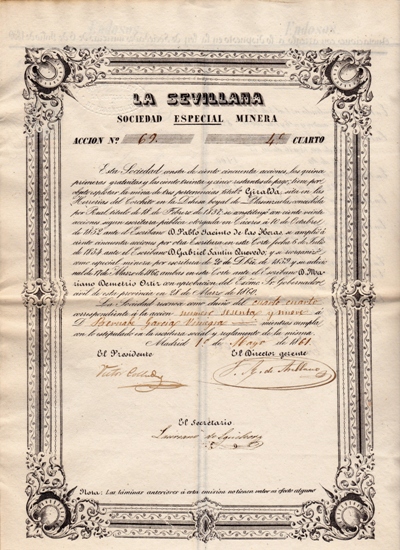 LA SEVILLANA
SOCIEDAD ESPECIAL MINERA
ACCION Nº 69. 4º CUARTO
Esta Sociedad consta de ciento cincuenta acciones, las quince
primeras gratuitas y las ciento treinta y cinco restantes de pago; tiene por
objeto esplotar de minas de las pertenencias titulª Giralda, sita en
Herrerias del en la Dehesa boyal de concedida
por Real titulo de 18 de Febrero de se constituyó en ciento veinte
acciones segun escritura publica otorgada en Cáceres á 10 de Octubre,
de 1852 ante el Escribano D. Pablo Jacinto de las Heras, se amplió á
ciento cincuenta acciones por otra Escritura en esta Corte fecha 6 de Julio
de 1854 ante el Escribano D. Gabriel Santin Quevedo, y se reorganizó
como especial minera por escritura de 20 de Dbre. de 1859 y adicio
nal de 17 de Marzo de ambas en esta Corte ante el Escribano D. Ma
riano Demetrio Ortiz con aprobacion del Escmo. Sr. Gobernador
civil de esta provincia en 21 de de
La Sociedad reconoce como dueño del cuarto cuarto
correspondiente á la accion numero sesenta y nueve á
D. Bernabe Garcia mientras cumpla
con lo estipulado en la escritura social y reglamento de la misma.
Madrid 1º de Mayo de 1861.
El Presidente El Director gerente
Victor
El Secretario
Laureano de
Nota: Las láminas anteriores á esta emision no tienen valor ni efecto alguno